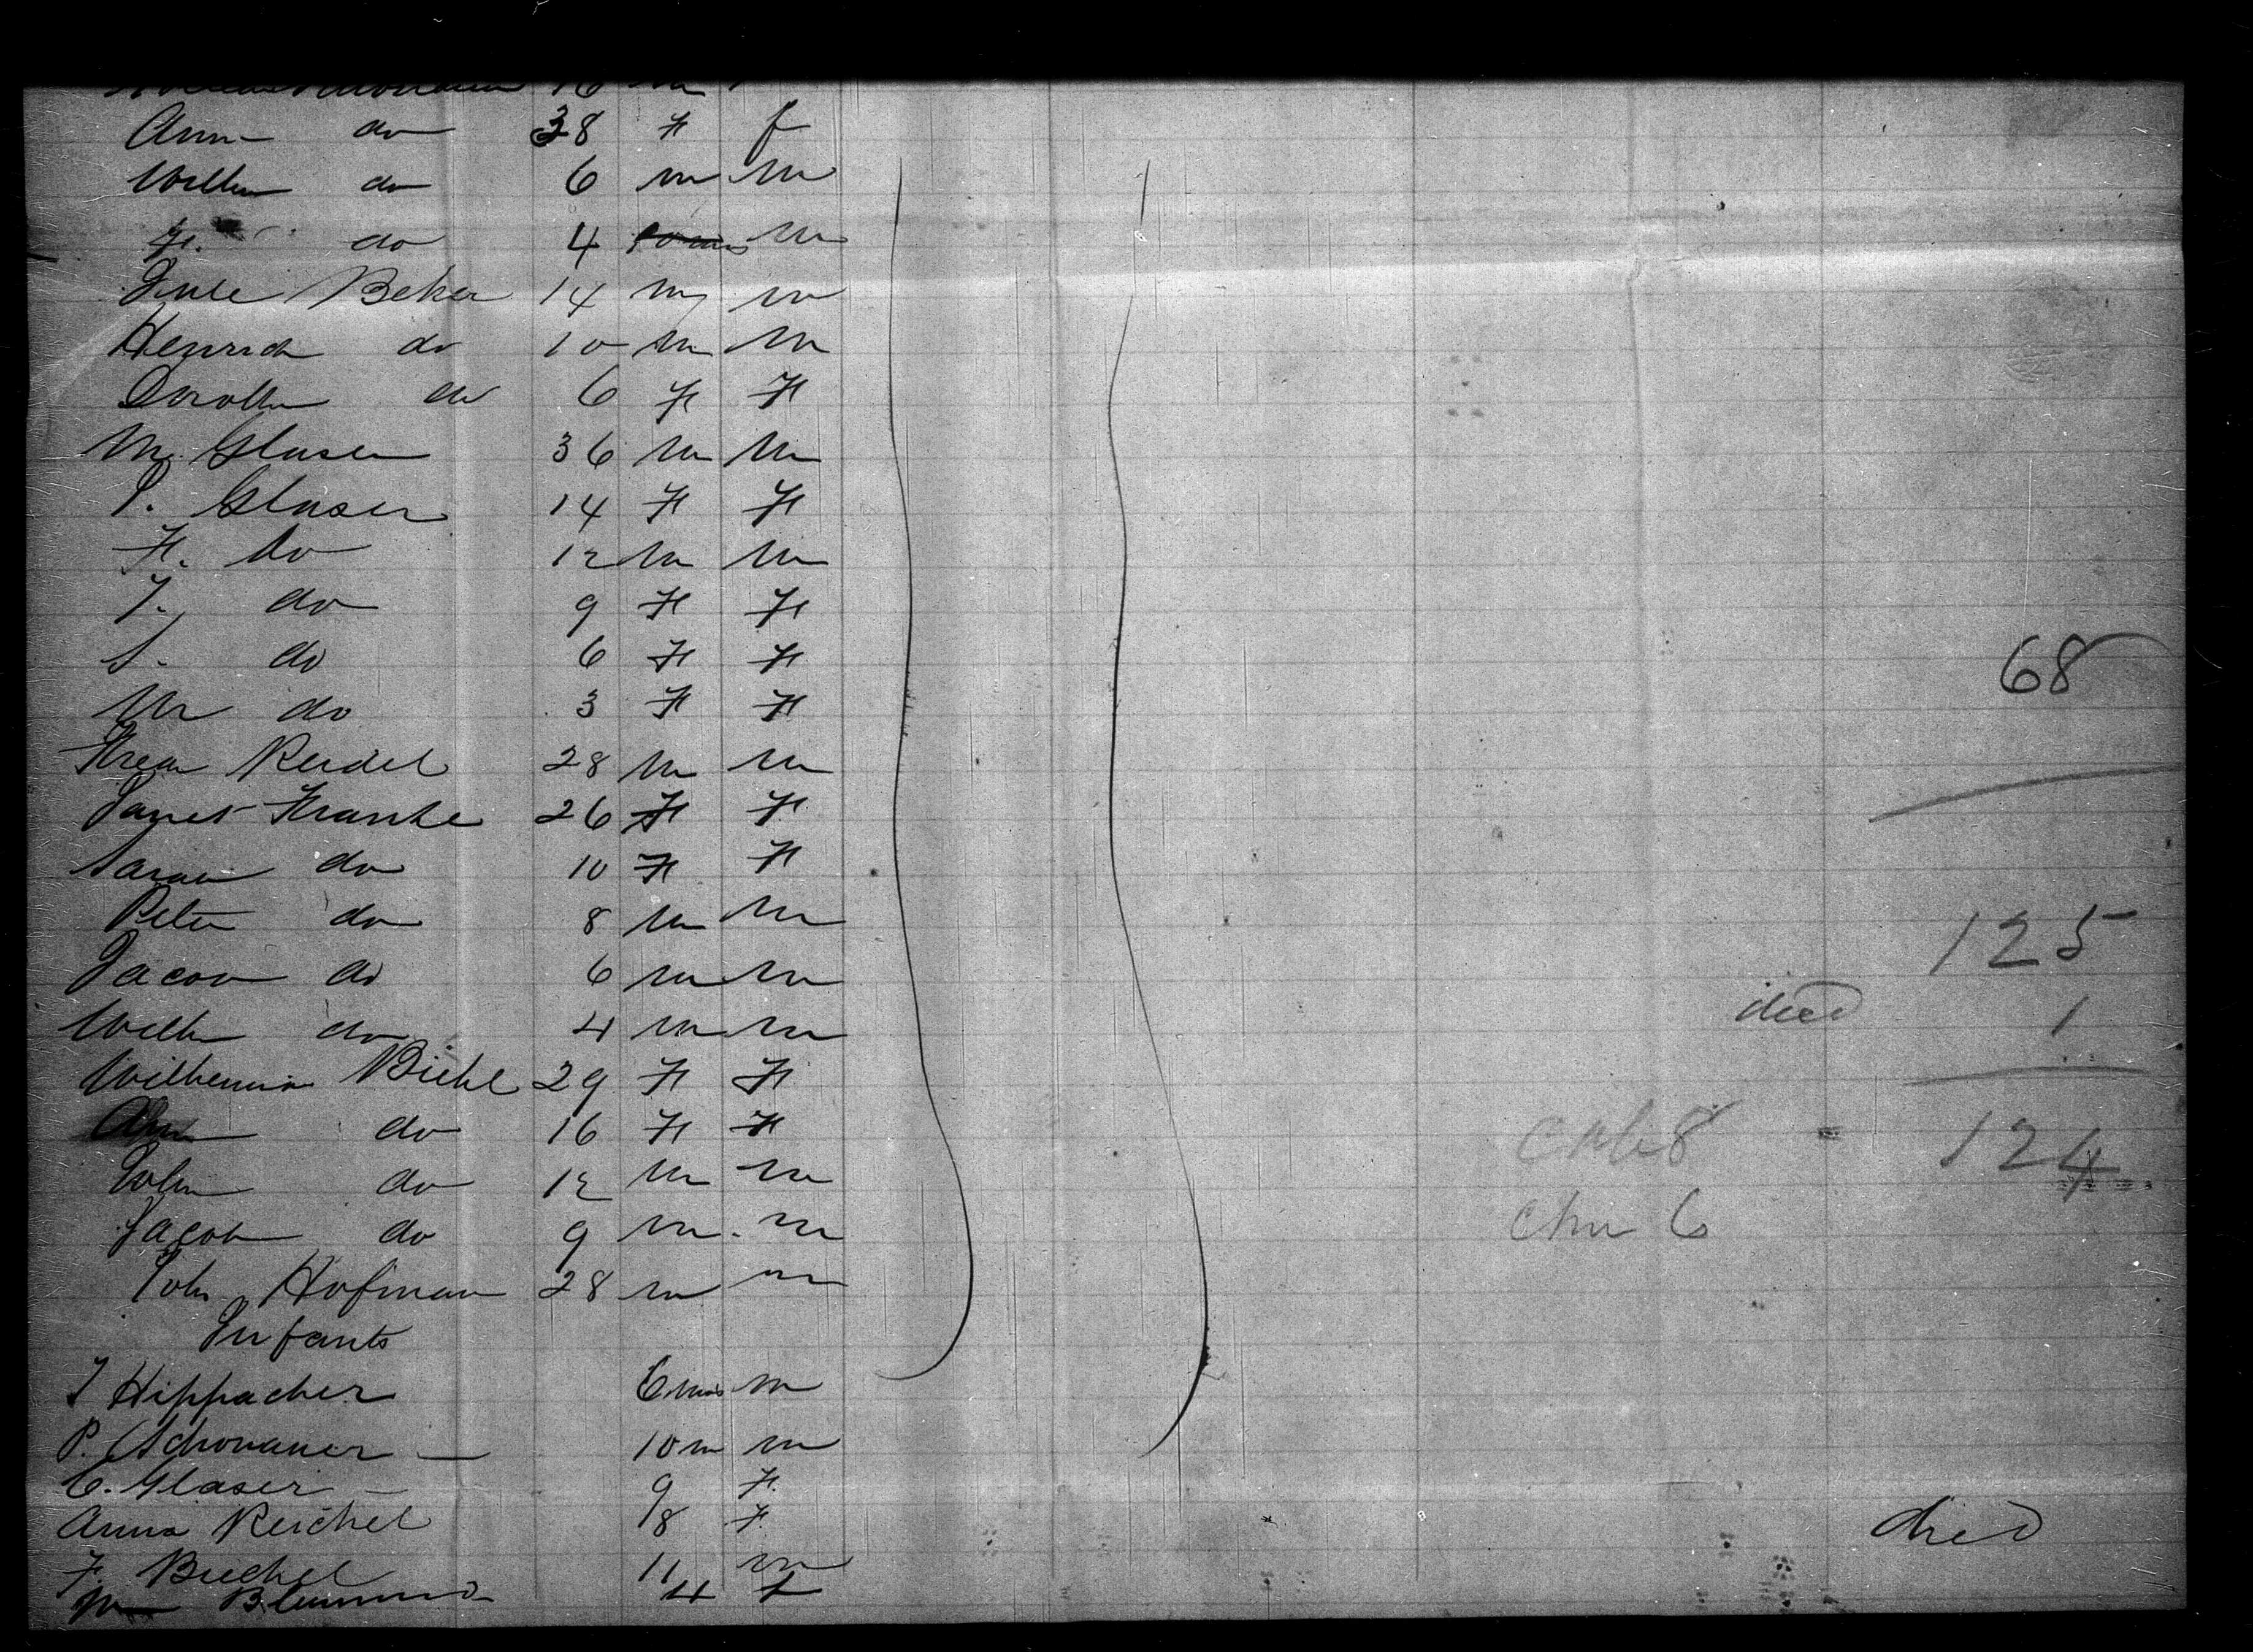 Ann do 38 F f
Wilhm do 6 m m
F. do 4 m
Beker 14 m m
Henrich do 10 m m
Dorothe do 6 F F
M. Glaser 36 m m
P. Glaser 14 F F
F. do 12 m m
J. do 9 F F
S. do 6 F F
M do 3 F F
68
Reidel 28 m m
Janet Franke 26 F F
Sarah do 10 F F
Peter do 8 m m
125
Jacob do 6 m m
died 1
Wilh do 4 m m
Wilhemina Biehl 29 F F
Ann do 16 F F
8 = 124
John do 12 m m
Jacob do 9 m m
6
John Hofman 28 m m
Infants
J Hippacher 6 mos m
P. Schonauer — 10 m m
C. Glaser — 9 F.
Anna Reichel 8 F.
died
F. Biechel 11 m
4 f